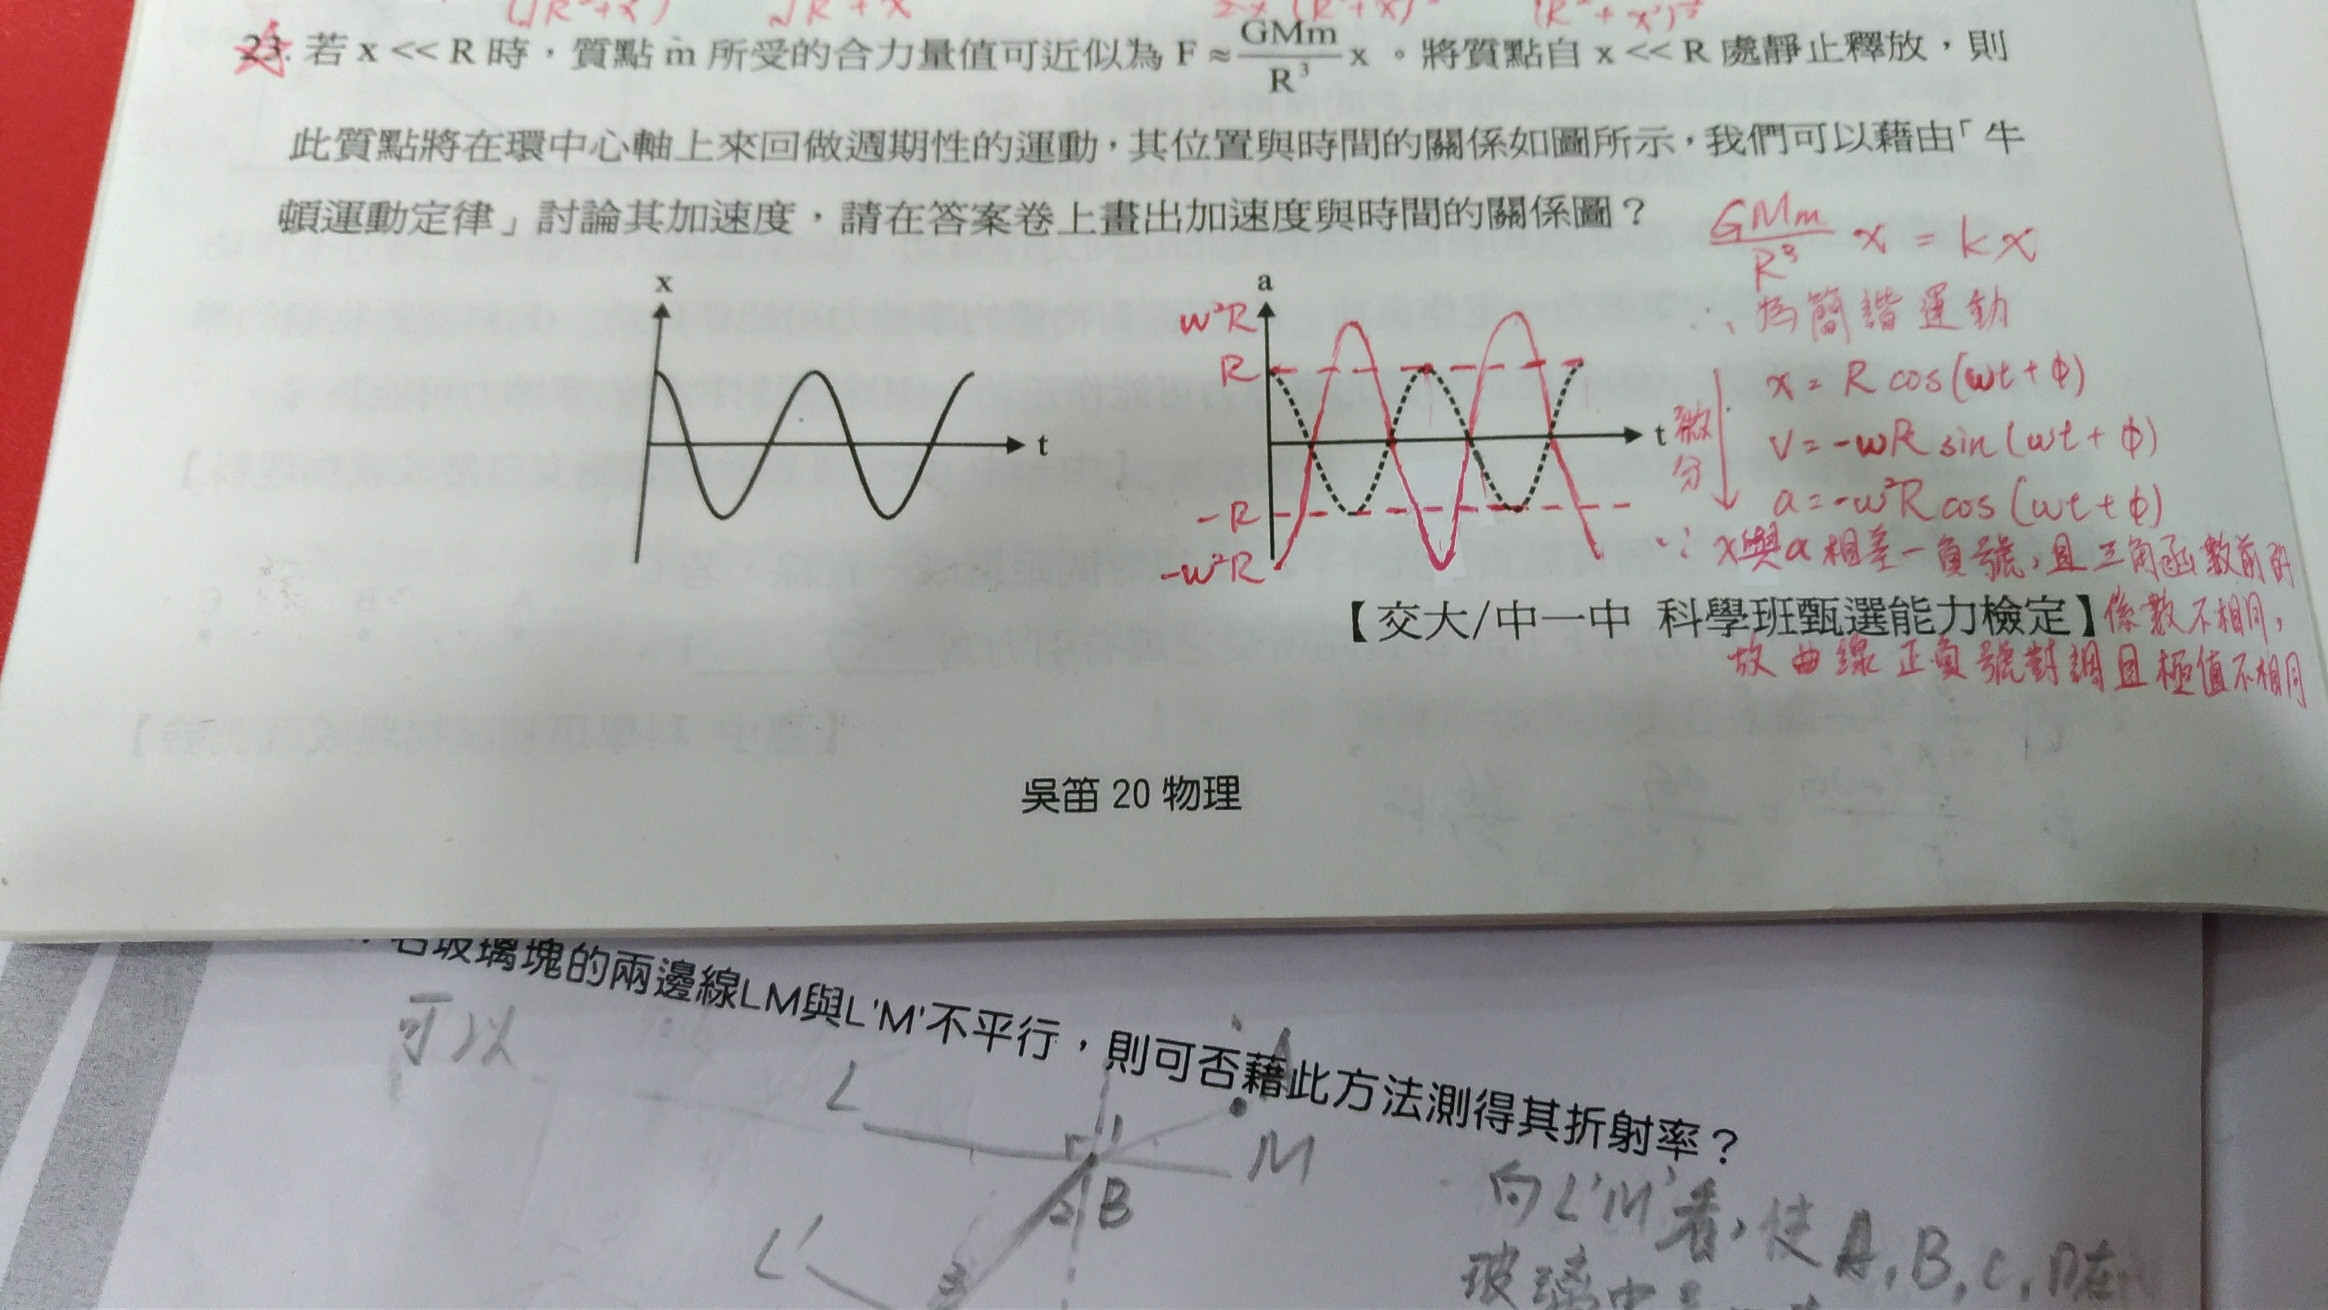 23. 若 x << R 時，質點 m 所受的合力量值可近似為 F ≈ GMm/R³ x 。將質點自 x << R 處靜止釋放，則
此質點將在環中心軸上來回做週期性的運動，其位置與時間的關係如圖所示，我們可以藉由「牛
頓運動定律」討論其加速度，請在答案卷上畫出加速度與時間的關係圖？
GMm/R³ x = kx
∴ 為簡諧運動
x
t
a
t
w²R
R
-R
-w²R
微分
x = R cos(wt+φ)
v = -wR sin(wt+φ)
a = -w²R cos(wt+φ)
∵ x與a相差一負號，且三角函數前的
係數不相同，
故曲線正負號對調且極值不相同
【交大/中一中 科學班甄選能力檢定】
吳笛 20 物理
若玻璃塊的兩邊線LM與L'M'不平行，則可否藉此方法測得其折射率？
可以
L
M
B
L'
向L'M'看，使A,B,C,D在
玻璃中